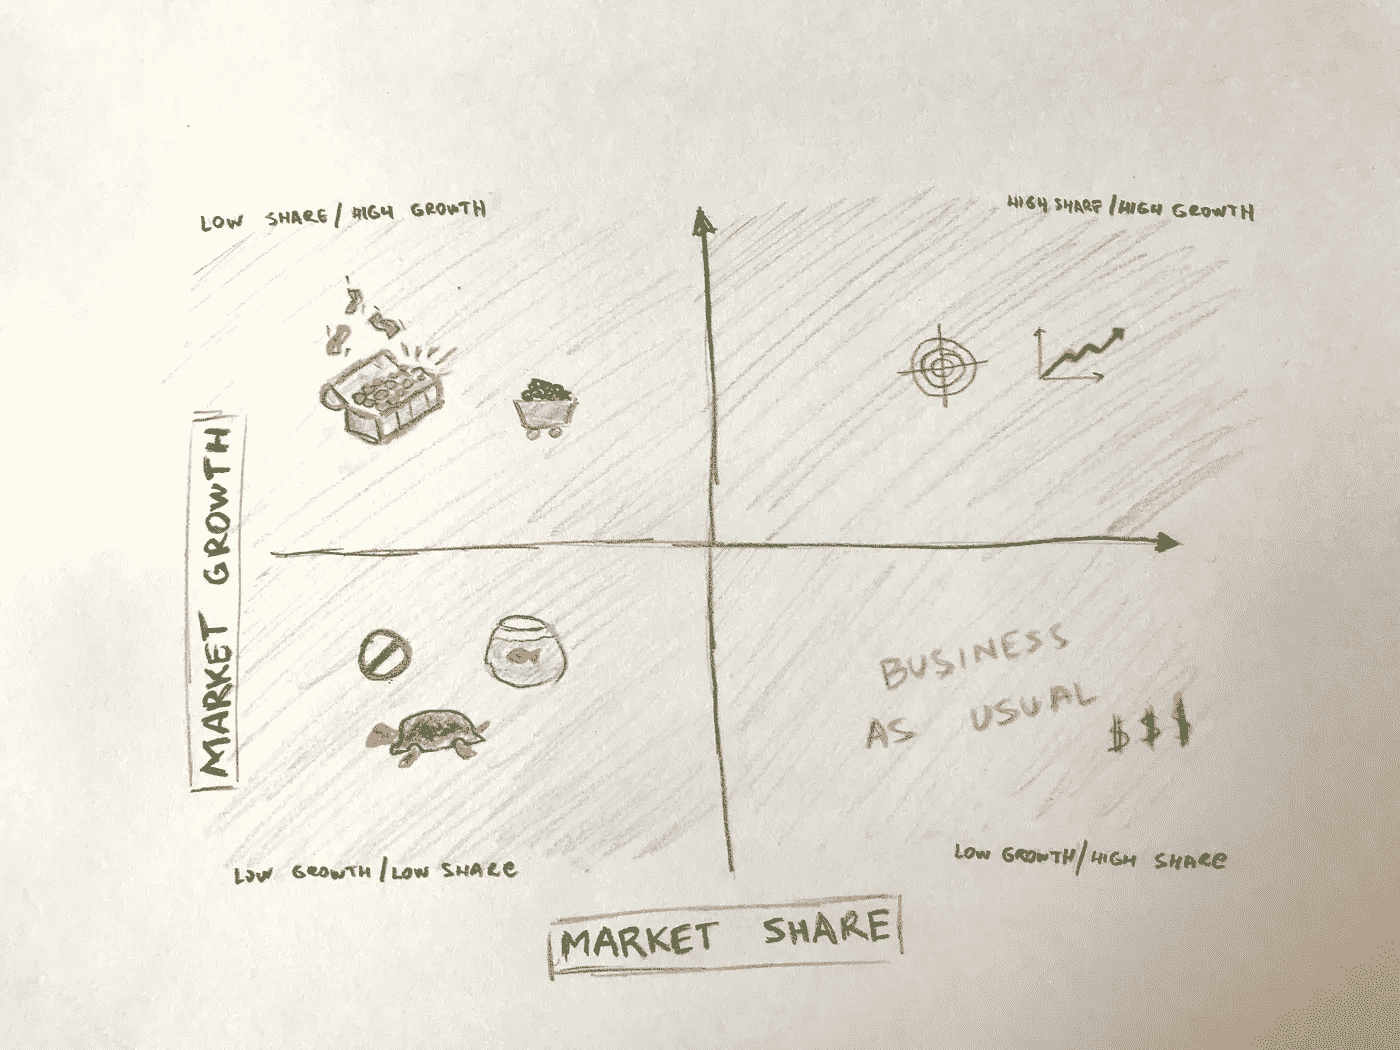 LOW SHARE/HIGH GROWTH
HIGH SHARE/HIGH GROWTH
MARKET GROWTH
BUSINESS
AS USUAL
$$$
LOW GROWTH/LOW SHARE
LOW GROWTH/HIGH SHARE
MARKET SHARE